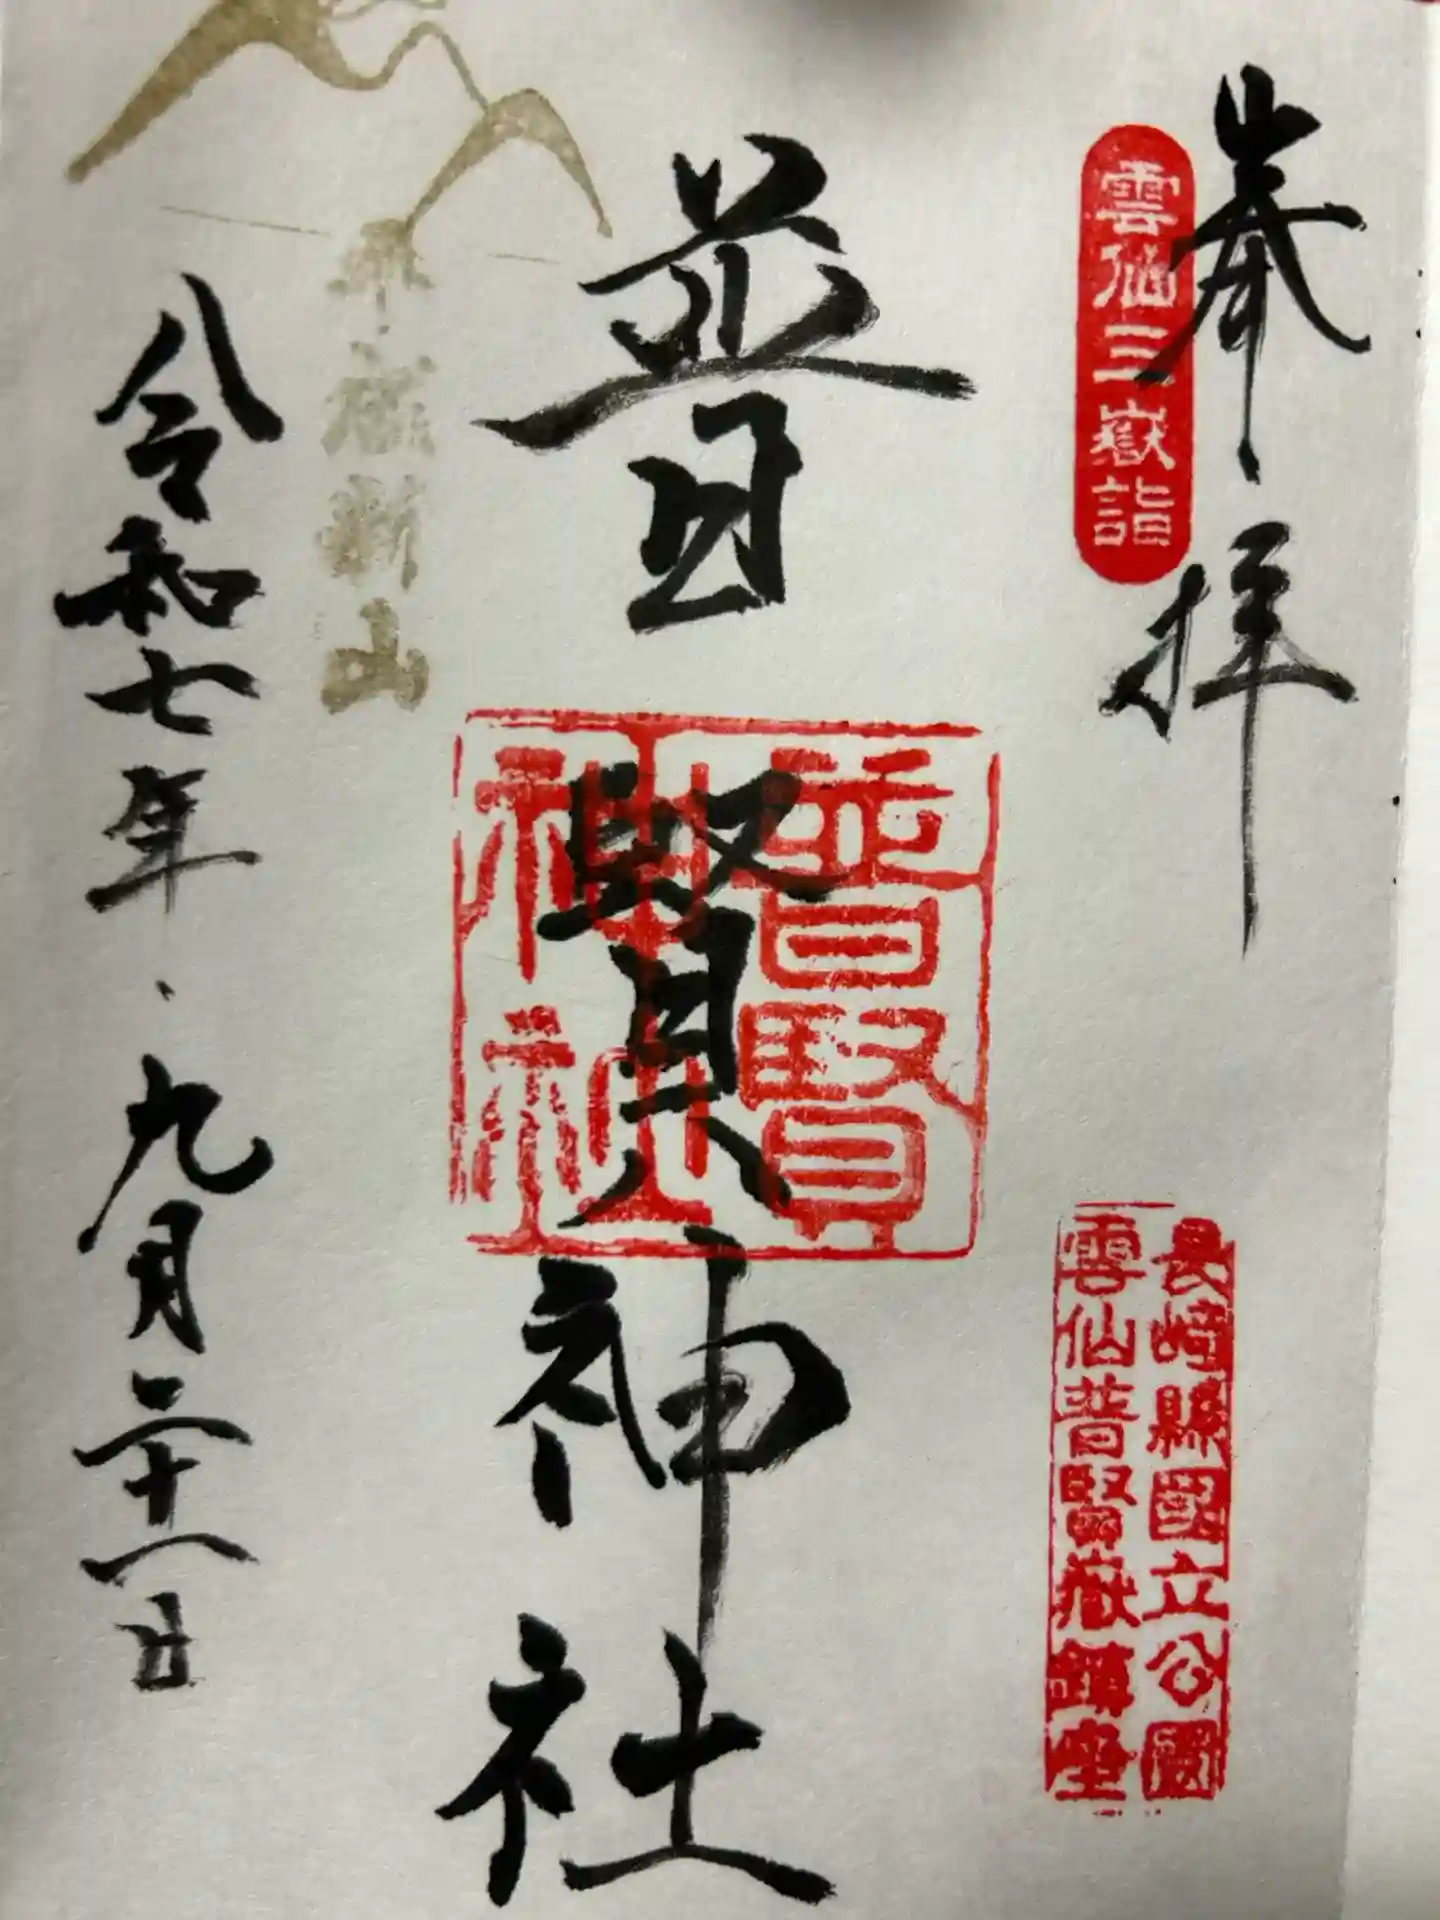 奉拝
雲仙三嶽詣
長崎縣國立公園
雲仙普賢嶽鎮座
普賢神社
普賢
神社
平成新山
令和七年九月二十一日